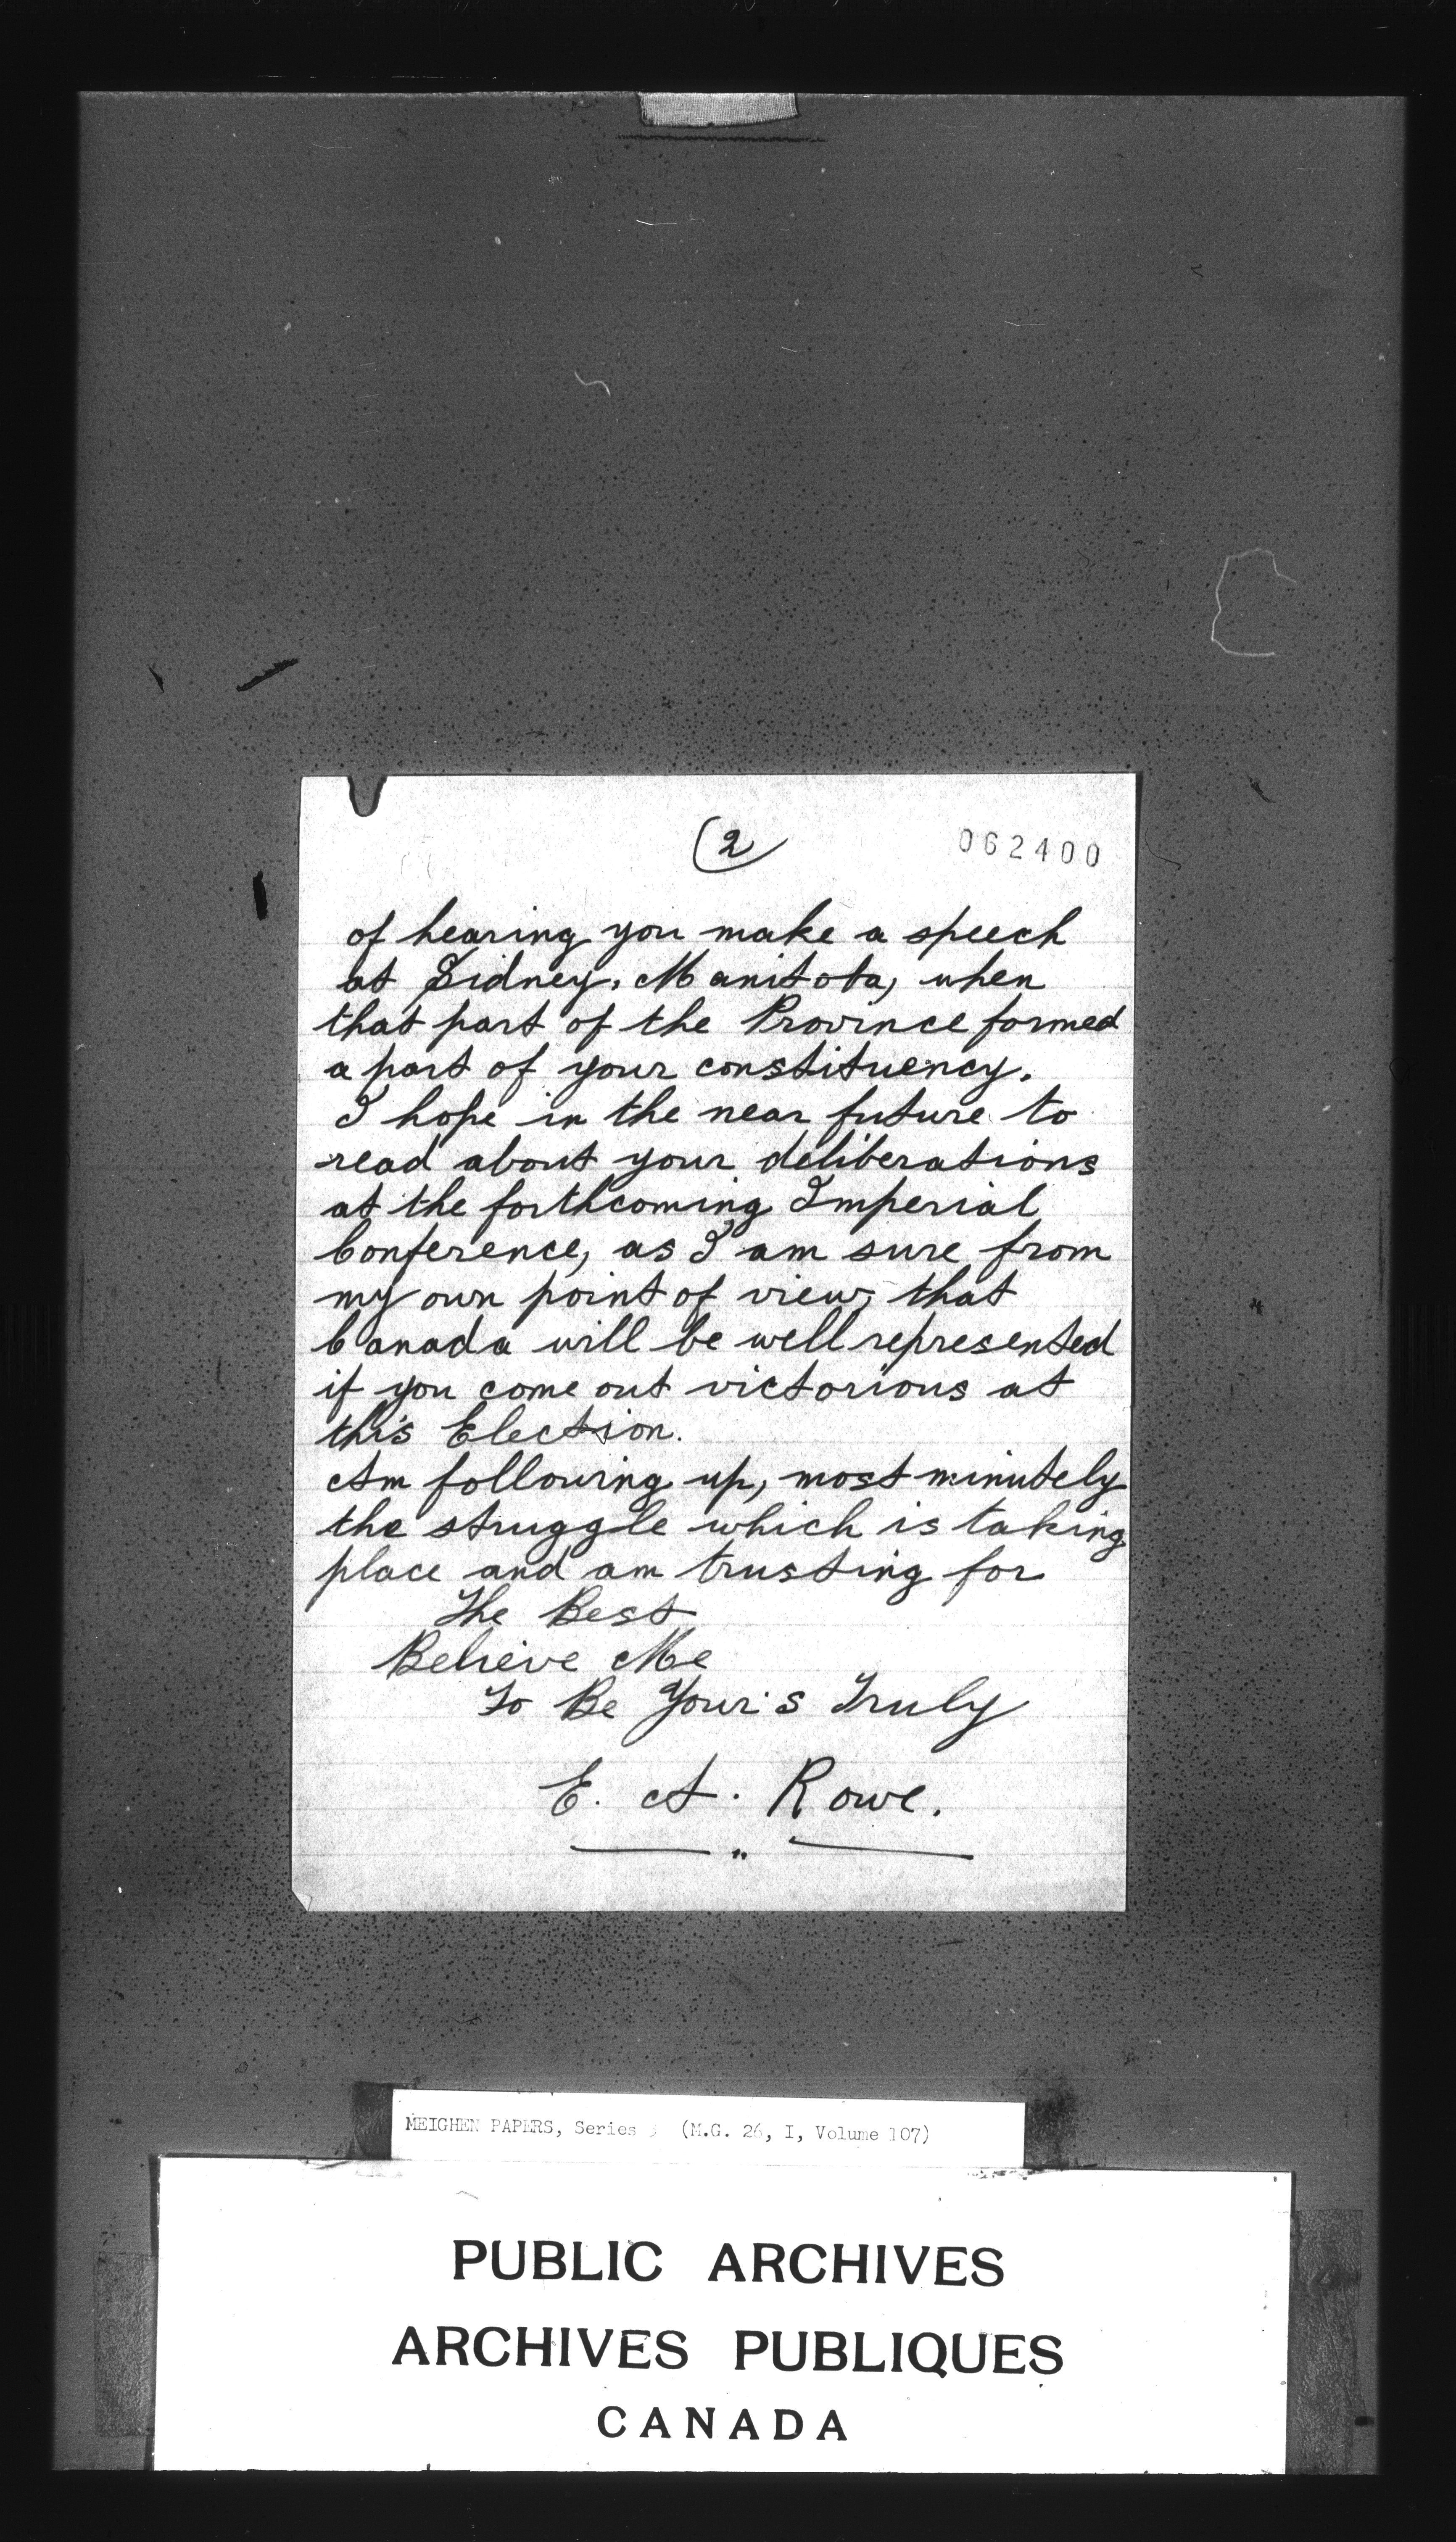 2
062400
of hearing you make a speech
at Sidney, Manitoba, when
that part of the Province formed
a part of your constituency.
I hope in the near future to
read about your deliberations
at the forthcoming Imperial
Conference, as I am sure from
my own point of view, that
Canada will be well represented
if you come out victorious at
this Election.
Am following up, most minutely
the struggle which is taking
place and am trusting for
The Best
Believe Me
To Be Your's Truly
E. A. Rowe.
MEIGHEN PAPERS, Series (M.G. 26, I, Volume 107)
PUBLIC ARCHIVES
ARCHIVES PUBLIQUES
CANADA